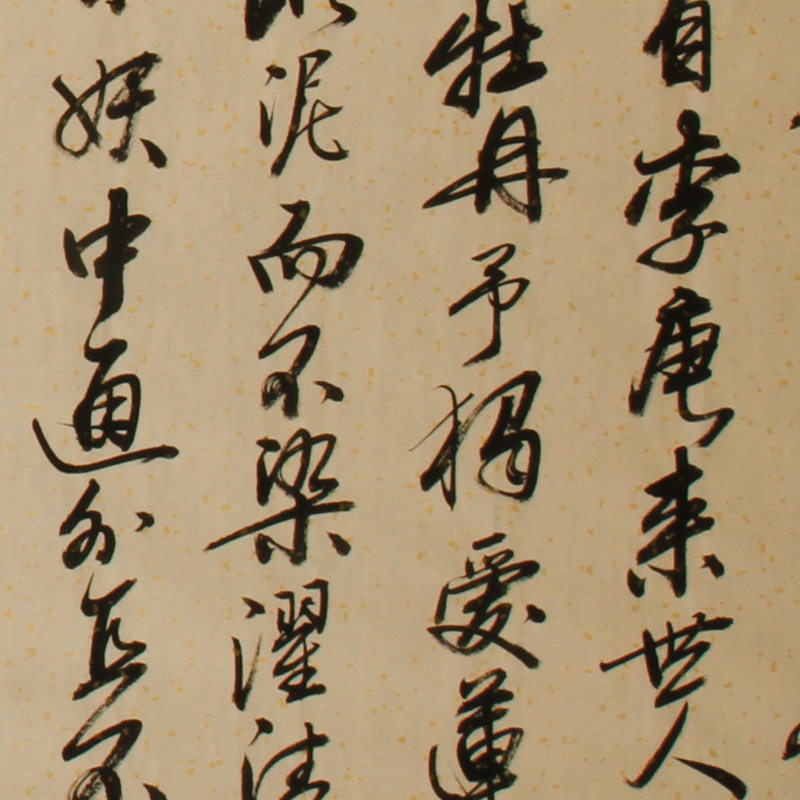 自李唐来世人
牡丹予獨愛蓮
泥而不染濯清
妖中通外直不